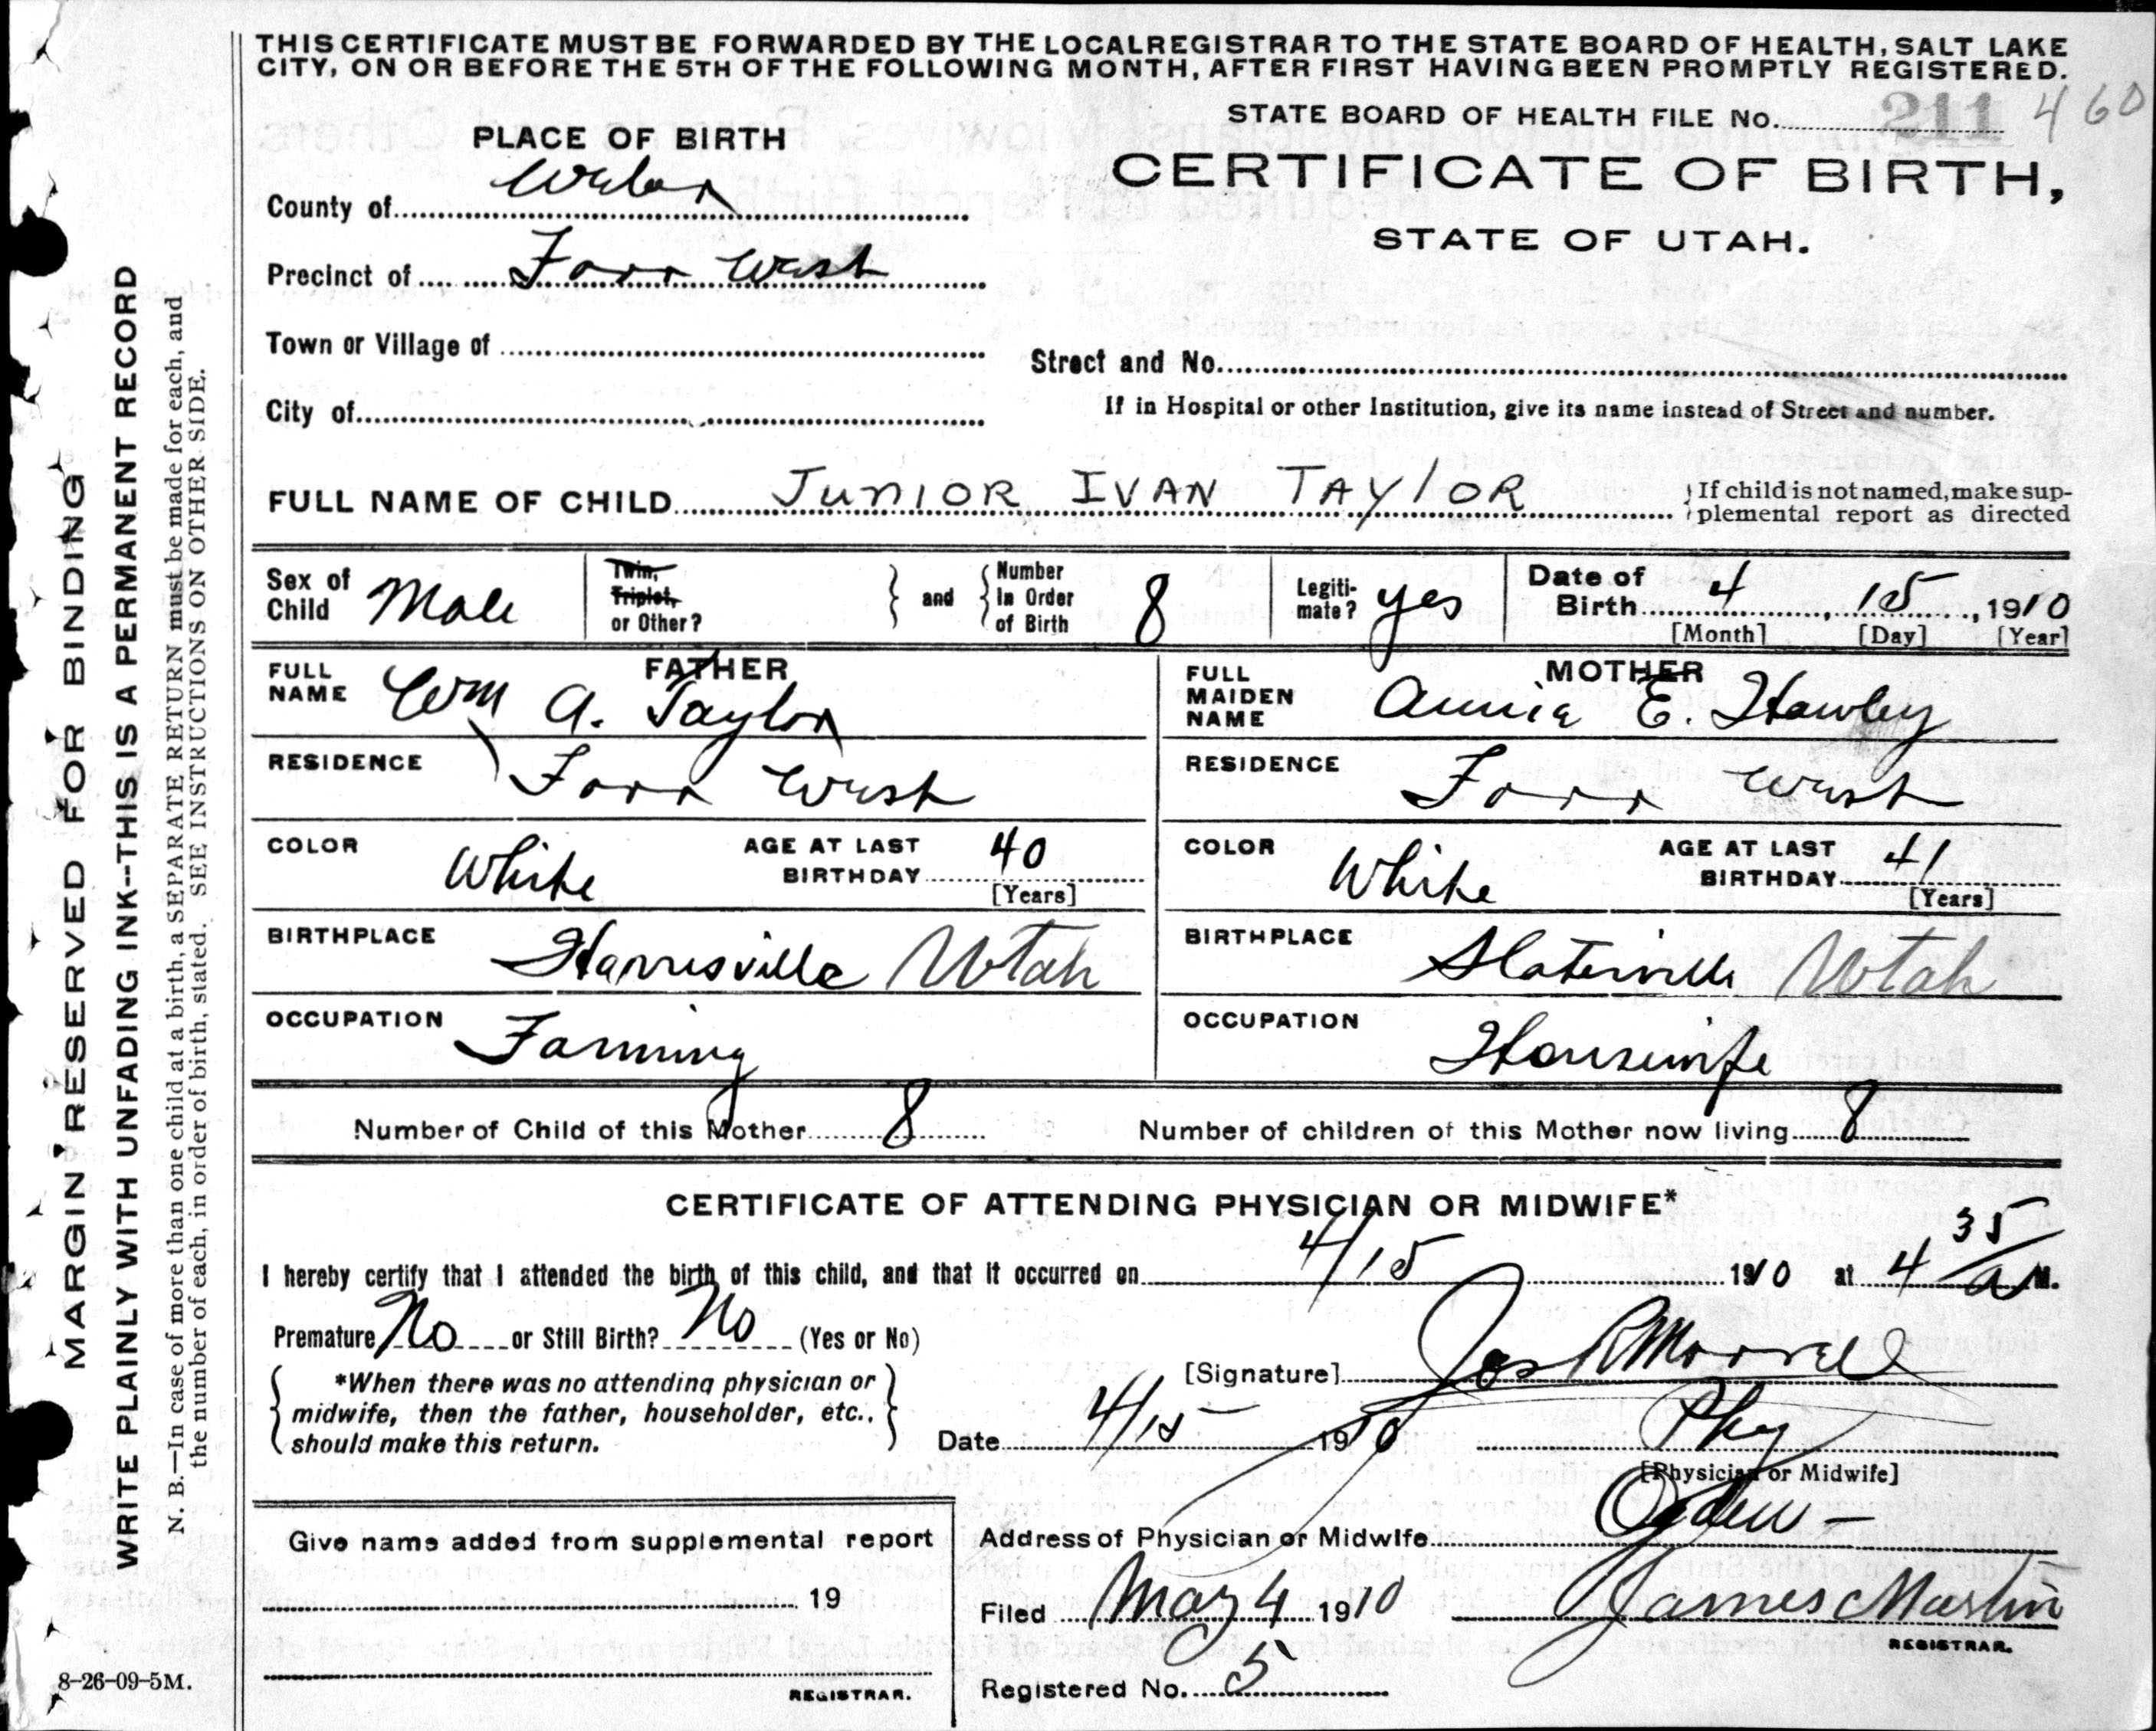 THIS CERTIFICATE MUST BE FORWARDED BY THE LOCAL REGISTRAR TO THE STATE BOARD OF HEALTH, SALT LAKE
CITY, ON OR BEFORE THE 5TH OF THE FOLLOWING MONTH, AFTER FIRST HAVING BEEN PROMPTLY REGISTERED.
STATE BOARD OF HEALTH FILE No. 211 460
PLACE OF BIRTH
CERTIFICATE OF BIRTH,
STATE OF UTAH.
County of Weber
Precinct of Farr West
Town or Village of
Street and No.
City of
If in Hospital or other Institution, give its name instead of Street and number.
FULL NAME OF CHILD JUNIOR IVAN TAYLOR
If child is not named, make sup-
plemental report as directed
Sex of Child Male
Twin, Triplet, or Other?
and
Number In Order of Birth 8
Legiti-mate? yes
Date of Birth 4, 15, 1910
[Month] [Day] [Year]
FATHER
FULL NAME Wm A. Taylor
RESIDENCE Farr West
COLOR White AGE AT LAST BIRTHDAY 40
[Years]
BIRTHPLACE Harrisville Utah
OCCUPATION Farming
MOTHER
FULL MAIDEN NAME Annie E. Hawley
RESIDENCE Farr West
COLOR White AGE AT LAST BIRTHDAY 41
[Years]
BIRTHPLACE Slaterville Utah
OCCUPATION Housewife
Number of Child of this Mother 8 Number of children of this Mother now living 8
CERTIFICATE OF ATTENDING PHYSICIAN OR MIDWIFE*
I hereby certify that I attended the birth of this child, and that it occurred on 4/15 1910 at 4 35/a M.
Premature No or Still Birth? No (Yes or No)
*When there was no attending physician or
midwife, then the father, householder, etc.,
should make this return.
[Signature] Jos R Morrell
Date 4/15 1910 Phy
[Physician or Midwife]
Address of Physician or Midwife Ogden -
Give name added from supplemental report
19
REGISTRAR.
Filed May 4 1910 James Martin
REGISTRAR.
Registered No. 5
MARGIN RESERVED FOR BINDING
WRITE PLAINLY WITH UNFADING INK--THIS IS A PERMANENT RECORD
N. B.—In case of more than one child at a birth, a SEPARATE RETURN must be made for each, and
the number of each, in order of birth, stated. SEE INSTRUCTIONS ON OTHER SIDE.
8-26-09-5M.